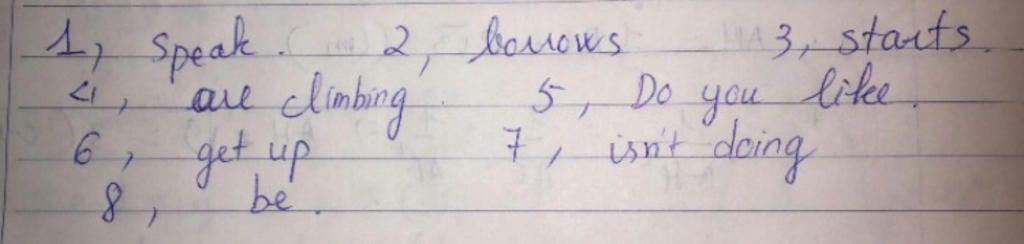 1, speak. 2, borrows 3, starts.
4, are climbing. 5, Do you like.
6, get up 7, isn't doing
8, be.